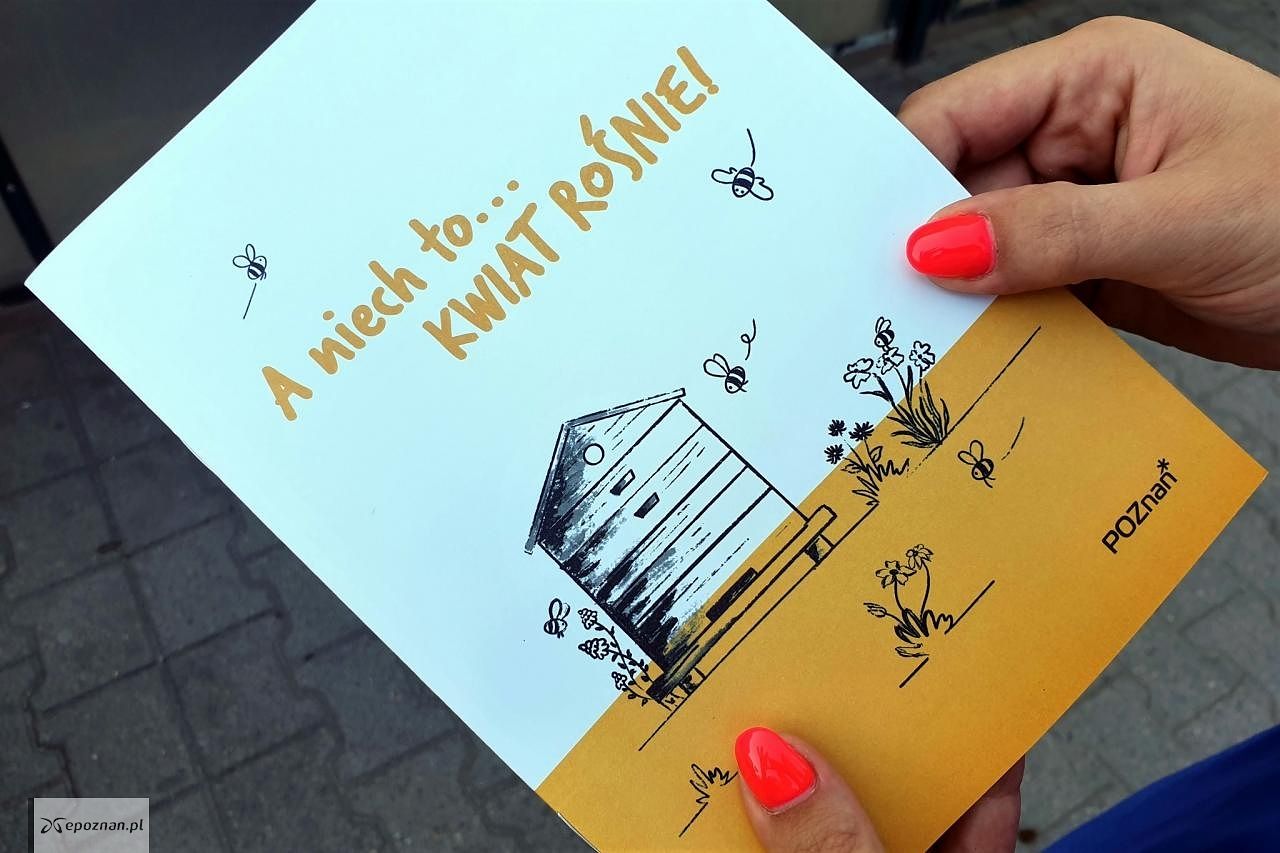 A niech to...
KWIAT ROŚNIE!
POZnań*
epoznan.pl